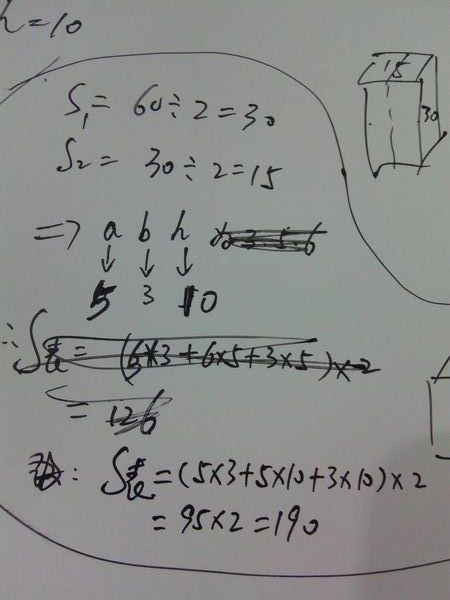 h=10
S₁= 60÷2=30
S₂= 30÷2=15
15
30
=> a b h
↓ ↓ ↓
5 3 10
∴S表= (6×3+6×5+3×5)×2
= 126
: S表=(5×3+5×10+3×10)×2
=95×2=190